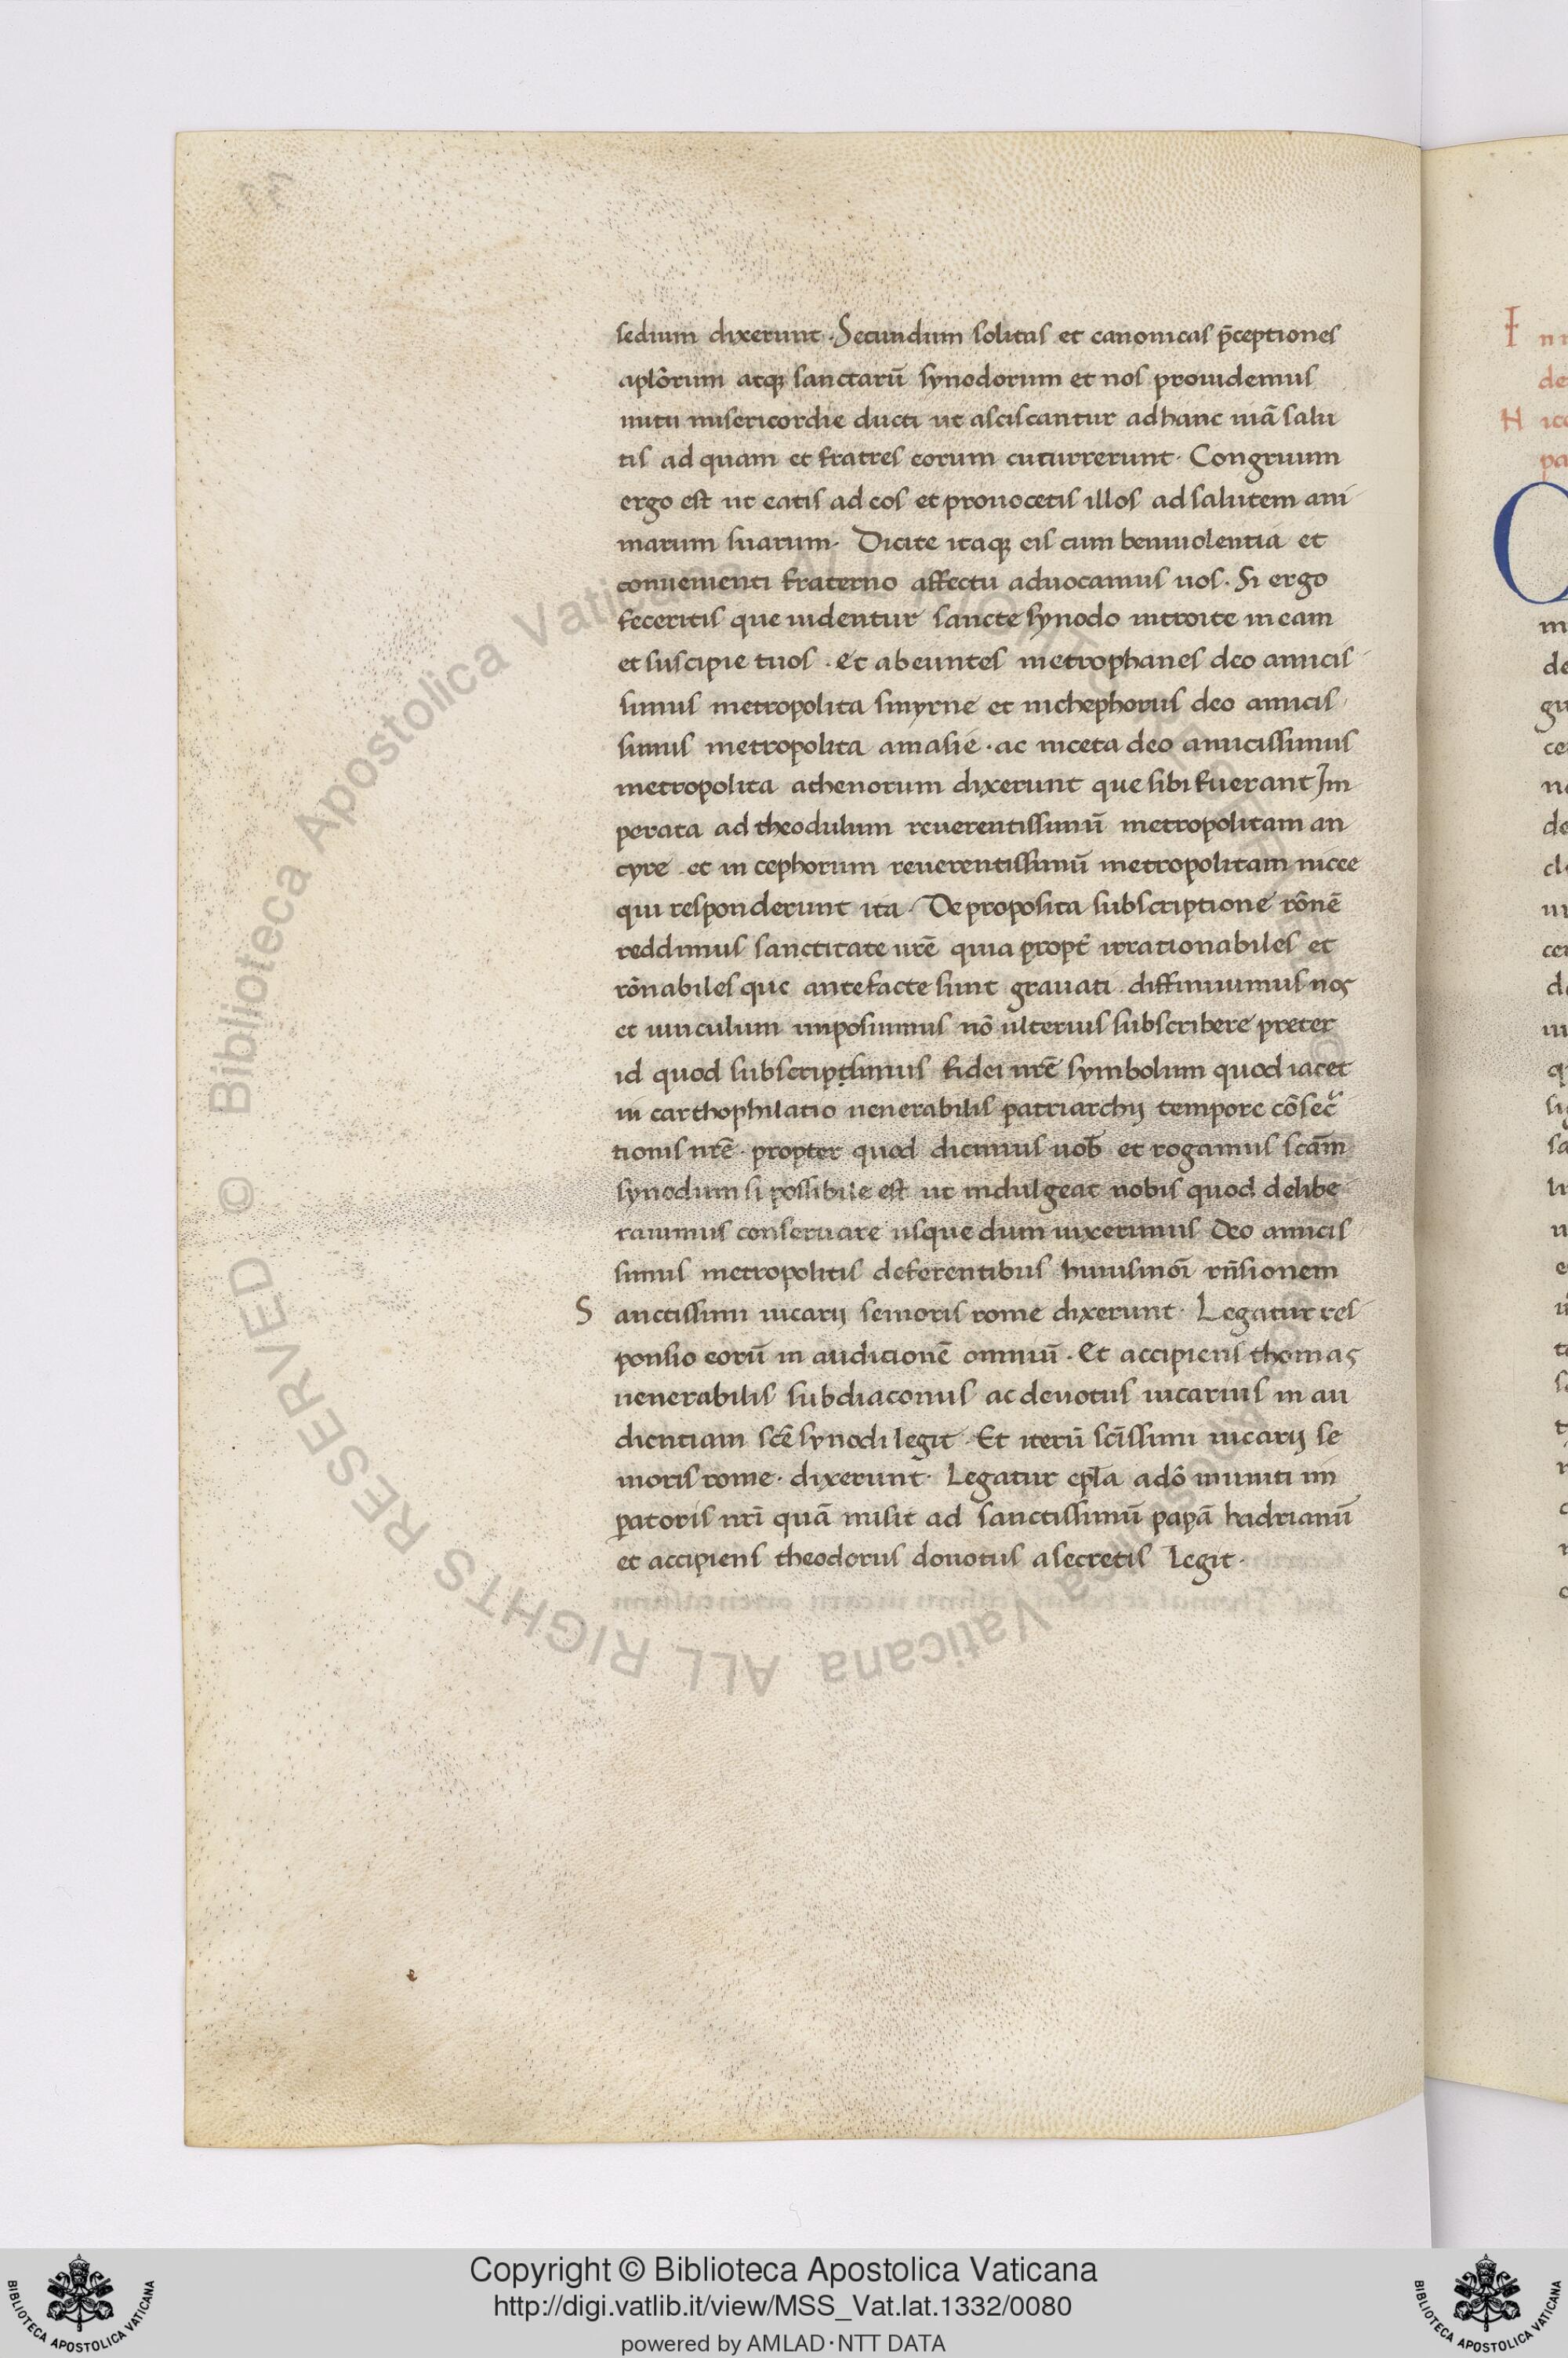 sedium dixerunt · Secundum solitas et canonicas p̄ceptiones
aptôrum atqꝫ sanctarū synodorum et nos prouidemus
nutu misericordie ducti ut asciscantur ad hanc uiā salu
tis ad quam et fratres eorum cuturrerunt · Congruum
ergo est ut eatis ad eos et prouocetis illos ad salutem ani
marum suarum · Dicite itaqꝫ eis cum beniuolentia et
conuenienti fraterno affectu aduocamus uos · Si ergo
feceritis que uidentur sancte synodo introite in eam
et suscipie tuos · et abeuntes metrophanes deo amicis
simus metropolita smyrne et nichephorus deo amicis
simus metropolita amasie · ac niceta deo amicissimus
metropolita athenorum dixerunt que sibi fuerant Im
perata ad theodulum reuerentissimū metropolitam an
cyre · et in cephorum reuerentissimū metropolitam nicee
qui responderunt ita · De proposita subscriptione rōnē
reddimus sanctitate urē quia propt̄ irrationabiles et
rōnabiles que ante facte sunt grauati diffiniuimus nos
et uinculum imposuimus nō ulterius subscribere preter
id quod subscripsimus fidei nrē symbolum quod iacet
in carthophilatio uenerabilis patriarchij tempore cōsec̄
tionis nrē · propter quod dicimus uob̄ et rogamus scām
synodum si possibile est ut indulgeat nobis quod delibe
rauimus conseruare usque dum uixerimus deo amicis
simus metropolitis deferentibus huiusmōi rn̄sionem
S anctissimi uicarij senioris rome dixerunt · Legatur res
ponsio eorū in auditionē omniū · Et accipiens thomas
uenerabilis subdiaconus ac deuotus uicarius in au
dientiam scē synodi legit · Et iterū scīssimi uicarij se
nioris rome · dixerunt · Legatur epl̄a adô muniti im
ꝑatoris nrī quā misit ad sanctissimū papā hadrianū
et accipiens theodorus douotus asecretis legit ·
I
de
N ico
pa
C
Biblioteca Apostolica Vaticana ALL RIGHTS RESERVED ©
Copyright © Biblioteca Apostolica Vaticana
http://digi.vatlib.it/view/MSS_Vat.lat.1332/0080
powered by AMLAD·NTT DATA
BIBLIOTECA APOSTOLICA VATICANA
BIBLIOTECA APOSTOLICA VATICANA